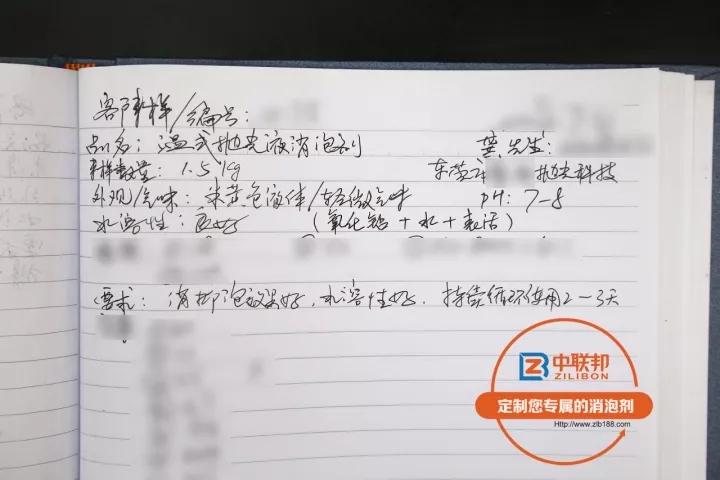 客户来样/编号：
品名：湿式抛光液消泡剂
龚先生：
来样数量：1.5kg
东莞市 抛光科技
外观/气味：米黄色液体/轻微气味 pH：7-8
水溶性：良好 （氧化铝+水+表活）
要求：消抑泡效果好，水溶性好，持续循环使用2-3天
中联邦
ZILIBON
定制您专属的消泡剂
Http://www.zlb188.com